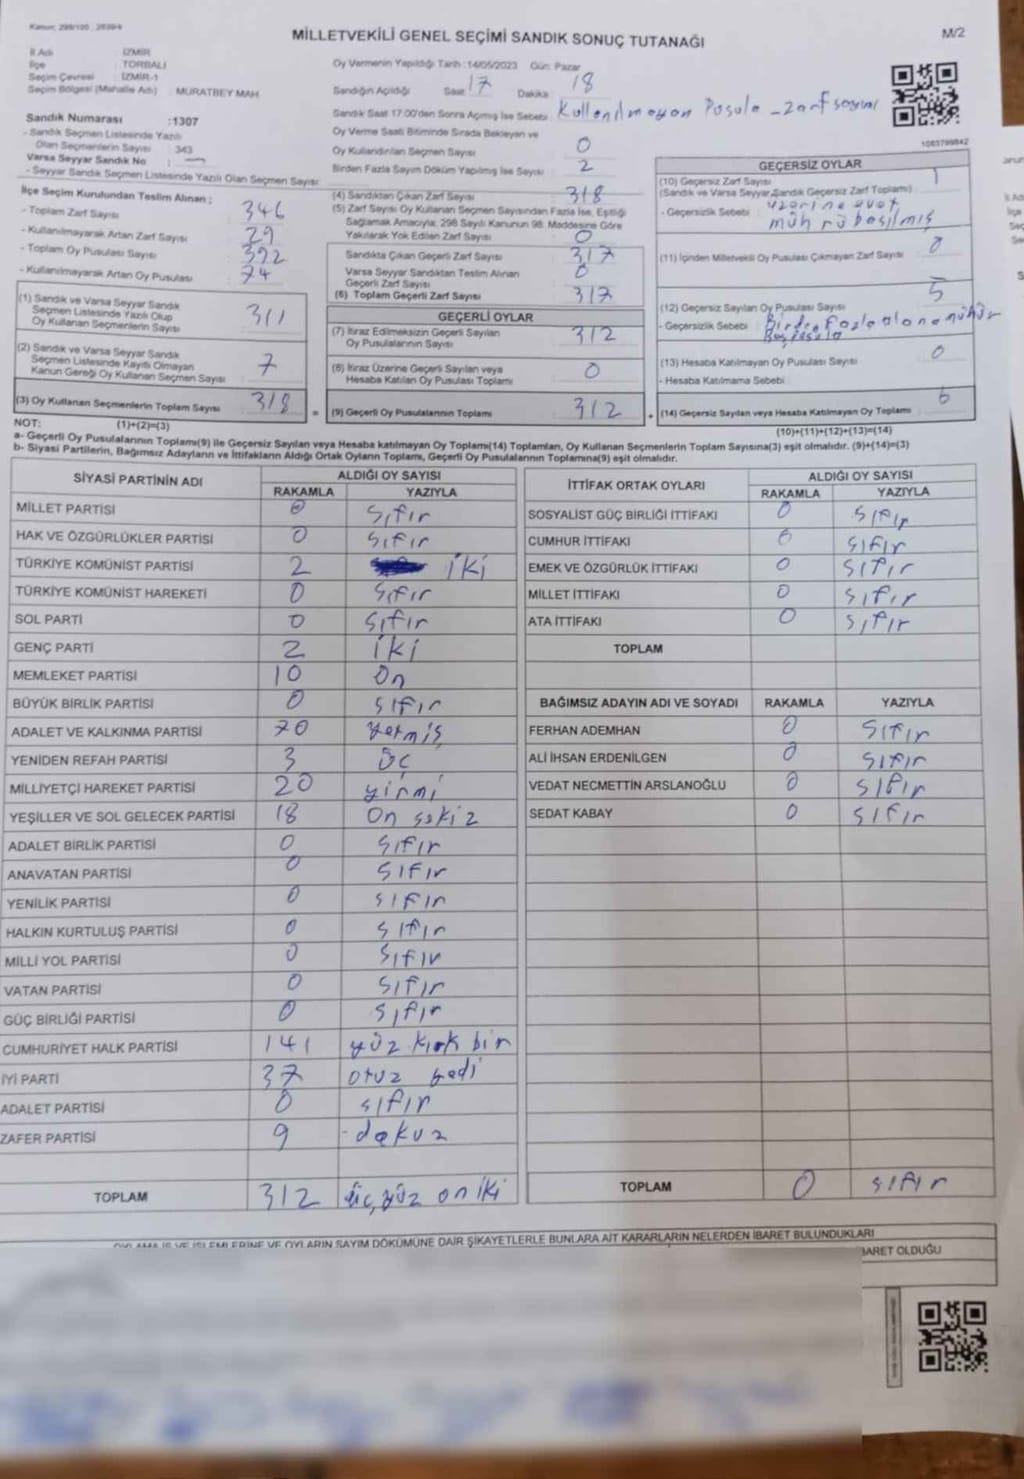 Kanun: 298/105 , 2839/4
MİLLETVEKİLİ GENEL SEÇİMİ SANDIK SONUÇ TUTANAĞI
M/2
İl Adı : İZMİR
İlçe : TORBALI
Seçim Çevresi : İZMİR-1
Seçim Bölgesi (Mahalle Adı) : MURATBEY MAH.
Oy Vermenin Yapıldığı Tarih :14/05/2023 Gün: Pazar
Sandığın Açıldığı Saat 17 Dakika : 18
Sandık Saat 17:00'den Sonra Açılmış İse Sebebi : Kullanılmayan Pusula _ zarf sayımı
Oy Verme Saati Bitiminde Sırada Bekleyen ve
Oy Kullandırılan Seçmen Sayısı : 0
Birden Fazla Sayım Döküm Yapılmış İse Sayısı : 2
Sandık Numarası :1307
- Sandık Seçmen Listesinde Yazılı
Olan Seçmenlerin Sayısı : 343
Varsa Seyyar Sandık No :
- Seyyar Sandık Seçmen Listesinde Yazılı Olan Seçmen Sayısı:
İlçe Seçim Kurulundan Teslim Alınan ;
- Toplam Zarf Sayısı : 346
- Kullanılmayarak Artan Zarf Sayısı : 29
- Toplam Oy Pusulası Sayısı : 392
- Kullanılmayarak Artan Oy Pusulası : 74
(1) Sandık ve Varsa Seyyar Sandık
Seçmen Listesinde Yazılı Olup
Oy Kullanan Seçmenlerin Sayısı : 311
(2) Sandık ve Varsa Seyyar Sandık
Seçmen Listesinde Kayıtlı Olmayan
Kanun Gereği Oy Kullanan Seçmen Sayısı : 7
(3) Oy Kullanan Seçmenlerin Toplam Sayısı : 318
(4) Sandıktan Çıkan Zarf Sayısı : 318
(5) Zarf Sayısı Oy Kullanan Seçmen Sayısından Fazla İse, Eşitliği
Sağlamak Amacıyla, 298 Sayılı Kanunun 98. Maddesine Göre
Yakılarak Yok Edilen Zarf Sayısı : 0
Sandıkta Çıkan Geçerli Zarf Sayısı : 317
Varsa Seyyar Sandıktan Teslim Alınan
Geçerli Zarf Sayısı : 0
(6) Toplam Geçerli Zarf Sayısı : 317
GEÇERLİ OYLAR
(7) İtiraz Edilmeksizin Geçerli Sayılan
Oy Pusulalarının Sayısı : 312
(8) İtiraz Üzerine Geçerli Sayılan veya
Hesaba Katılan Oy Pusulası Toplamı : 0
= (9) Geçerli Oy Pusulalarının Toplamı : 312 +
1083799842
GEÇERSİZ OYLAR
(10) Geçersiz Zarf Sayısı : 1
(Sandık ve Varsa Seyyar Sandık Geçersiz Zarf Toplamı)
- Geçersizlik Sebebi : üzerine evet
mührü basılmış
(11) İçinden Milletvekili Oy Pusulası Çıkmayan Zarf Sayısı : 0
(12) Geçersiz Sayılan Oy Pusulası Sayısı : 5
- Geçersizlik Sebebi : Birden fazla alana mühür
Boş pusula
(13) Hesaba Katılmayan Oy Pusulası Sayısı : 0
- Hesaba Katılmama Sebebi :
(14) Geçersiz Sayılan veya Hesaba Katılmayan Oy Toplamı : 6
NOT: (1)+(2)=(3) (10)+(11)+(12)+(13)=(14)
a- Geçerli Oy Pusulalarının Toplamı(9) ile Geçersiz Sayılan veya Hesaba katılmayan Oy Toplamı(14) Toplamları, Oy Kullanan Seçmenlerin Toplam Sayısına(3) eşit olmalıdır. (9)+(14)=(3)
b- Siyasi Partilerin, Bağımsız Adayların ve İttifakların Aldığı Ortak Oyların Toplamı, Geçerli Oy Pusulalarının Toplamına(9) eşit olmalıdır.
SİYASİ PARTİNİN ADI ALDIĞI OY SAYISI
RAKAMLA YAZIYLA
MİLLET PARTİSİ 0 Sıfır
HAK VE ÖZGÜRLÜKLER PARTİSİ 0 Sıfır
TÜRKİYE KOMÜNİST PARTİSİ 2 iki
TÜRKİYE KOMÜNİST HAREKETİ 0 Sıfır
SOL PARTİ 0 Sıfır
GENÇ PARTİ 2 iki
MEMLEKET PARTİSİ 10 On
BÜYÜK BİRLİK PARTİSİ 0 sıfır
ADALET VE KALKINMA PARTİSİ 70 yetmiş
YENİDEN REFAH PARTİSİ 3 üç
MİLLİYETÇİ HAREKET PARTİSİ 20 yirmi
YEŞİLLER VE SOL GELECEK PARTİSİ 18 On sekiz
ADALET BİRLİK PARTİSİ 0 Sıfır
ANAVATAN PARTİSİ 0 sıfır
YENİLİK PARTİSİ 0 sıfır
HALKIN KURTULUŞ PARTİSİ 0 sıfır
MİLLİ YOL PARTİSİ 0 Sıfır
VATAN PARTİSİ 0 sıfır
GÜÇ BİRLİĞİ PARTİSİ 0 sıfır
CUMHURİYET HALK PARTİSİ 141 yüz kırk bir
İYİ PARTİ 37 otuz yedi
ADALET PARTİSİ 0 sıfır
ZAFER PARTİSİ 9 dokuz
TOPLAM 312 üç yüz on iki
İTTİFAK ORTAK OYLARI ALDIĞI OY SAYISI
RAKAMLA YAZIYLA
SOSYALİST GÜÇ BİRLİĞİ İTTİFAKI 0 sıfır
CUMHUR İTTİFAKI 0 sıfır
EMEK VE ÖZGÜRLÜK İTTİFAKI 0 sıfır
MİLLET İTTİFAKI 0 sıfır
ATA İTTİFAKI 0 sıfır
TOPLAM
BAĞIMSIZ ADAYIN ADI VE SOYADI RAKAMLA YAZIYLA
FERHAN ADEMHAN 0 sıfır
ALİ İHSAN ERDENİLGEN 0 sıfır
VEDAT NECMETTİN ARSLANOĞLU 0 sıfır
SEDAT KABAY 0 sıfır
TOPLAM 0 sıfır
OYLAMA İŞ VE İŞLEMLERİNE VE OYLARIN SAYIM DÖKÜMÜNE DAİR ŞİKAYETLERLE BUNLARA AİT KARARLARIN NELERDEN İBARET BULUNDUKLARI
İBARET OLDUĞU